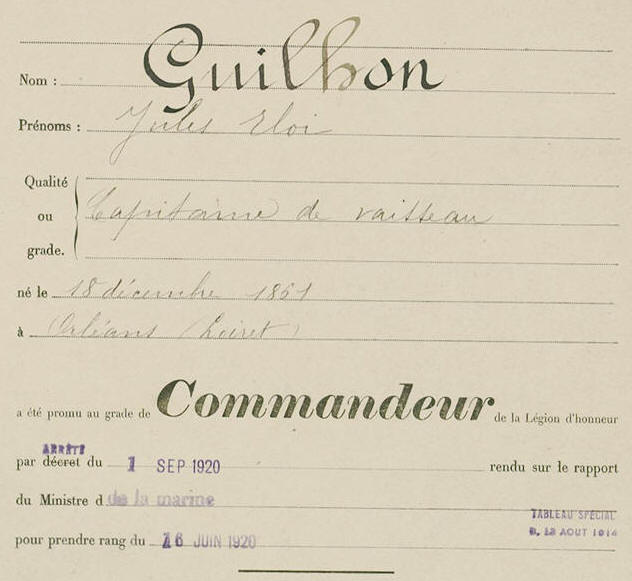 Nom : Guilhon
Prénoms : Jules Eloi
Qualité
ou Capitaine de vaisseau
grade.
né le 18 décembre 1861
à Orléans (Loiret)
a été promu au grade de Commandeur de la Légion d'honneur
ARRÊTÉ
par décret du 1 SEP 1920 rendu sur le rapport
du Ministre d de la marine
TABLEAU SPÉCIAL
pour prendre rang du 16 JUIN 1920
AOUT 1914